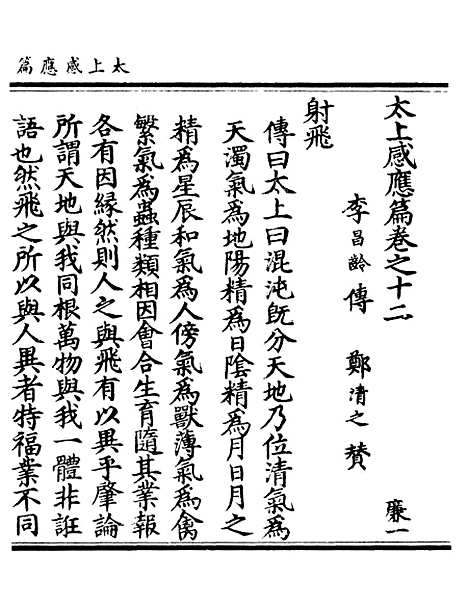 太上感應篇
太上感應篇卷之十二 廉一
李昌齡傳 鄭清之贊
射飛
傳曰太上曰混沌旣分天地乃位清氣爲
天濁氣爲地陽精爲日陰精爲月日月之
精爲星辰和氣爲人傍氣爲獸薄氣爲禽
繁氣爲蟲種類相因會合生育隨其業報
各有因緣然則人之與飛有以異乎肇論
所謂天地與我同根萬物與我一體非誑
語也然飛之所以與人異者特福業不同